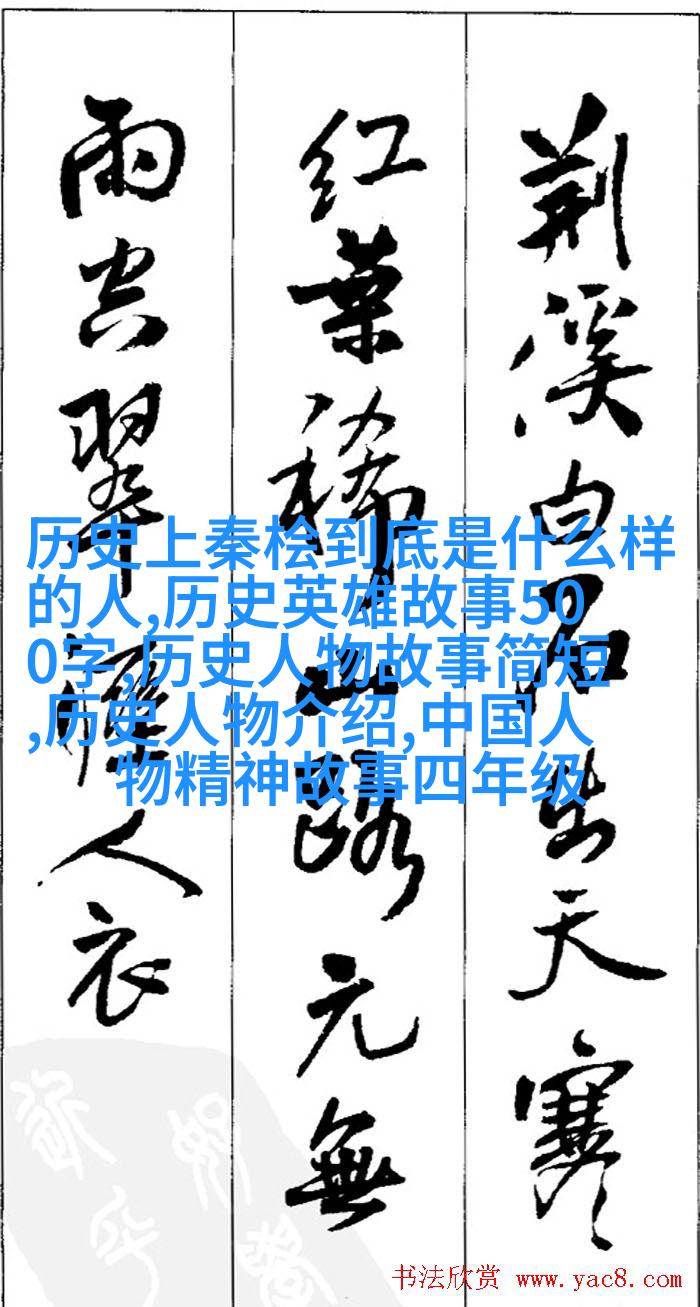 荆溪白石出天寒
红葉稀山路元無
雨空翠濕人衣
历史上秦桧到底是什么样
的人,历史英雄故事50
0字,历史人物故事简短
,历史人物介绍,中国人
物精神故事四年级
书法欣赏 www.yac8.com